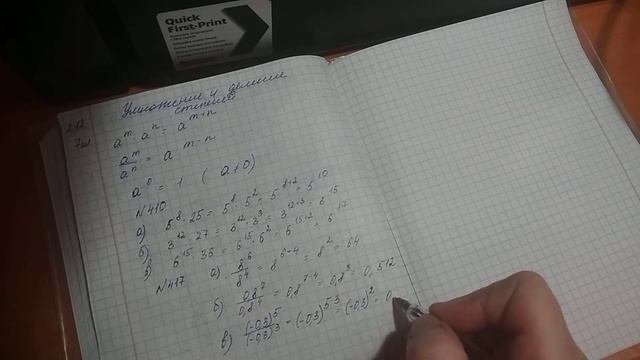 Quick
First-Print
Умножение и деление
степеней
7кл
a^m · a^n = a^{m+n}
a^m / a^n = a^{m-n}
a^0 = 1 (a≠0)
№410
а) 5^8 · 25 = 5^8 · 5^2 = 5^{8+2} = 5^10
б) 3^12 · 27 = 3^12 · 3^3 = 3^{12+3} = 3^15
в) 6^15 · 36 = 6^15 · 6^2 = 6^{15+2} = 6^17
№417 а) 8^6 / 8^4 = 8^{6-4} = 8^2 = 64
б) 0,8^7 / 0,8^4 = 0,8^{7-4} = 0,8^3 = 0,512
в) (-0,3)^5 / (-0,3)^3 = (-0,3)^{5-3} = (-0,3)^2 = 0